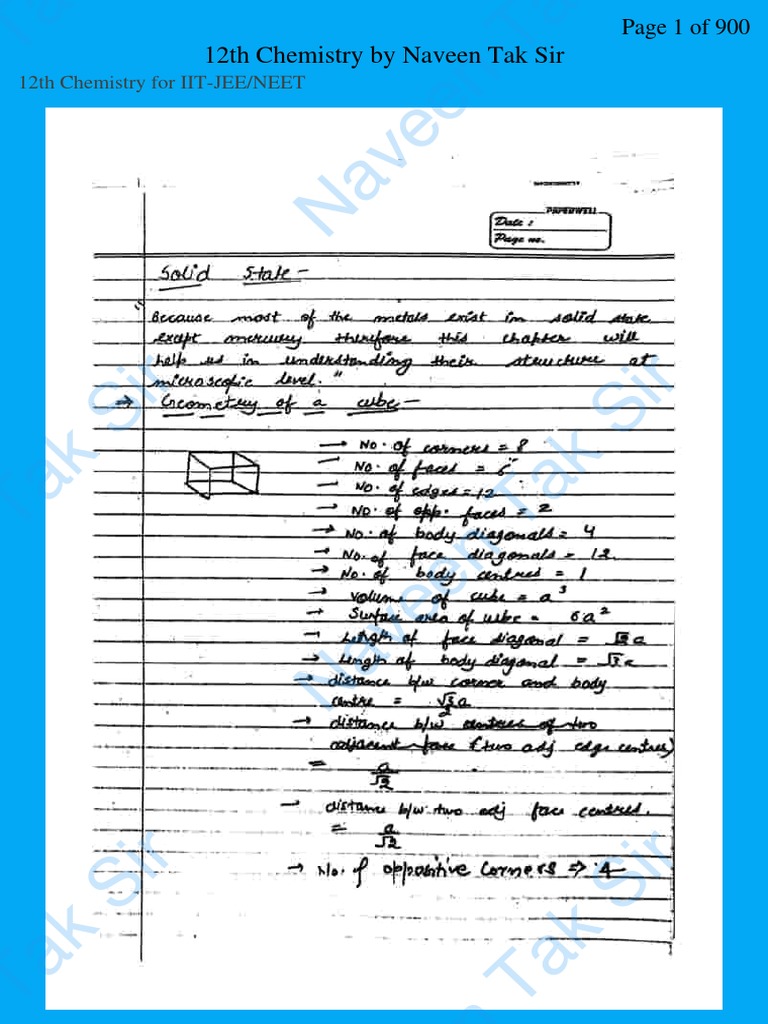 Page 1 of 900
12th Chemistry by Naveen Tak Sir
12th Chemistry for IIT-JEE/NEET
PAPERWELL
Date :
Page no.
Solid State -
"Because most of the metals exist in solid state
except mercury therefore this chapter will
help us in understanding their structure at
microscopic level."
⇒ Geometry of a cube -
→ No. of corners = 8
No. of faces = 6
- No. of edges = 12
→ No. of opp. faces = 2
→ No. of body diagonals = 4
→ No. of face diagonals = 12
→ No. of body centres = 1
→ Volume of cube = a³
→ Surface area of cube = 6a²
→ Length of face diagonal = √2a
→ Length of body diagonal = √3a
→ distance b/w corner and body
centre = √3a/2
→ distance b/w centres of two
adjacent face (two adj edge centres)
= a/√2
→ distance b/w two adj face centres.
= a/√2
→ No. of oppositive corners ⇒ 4
Naveen Tak Sir